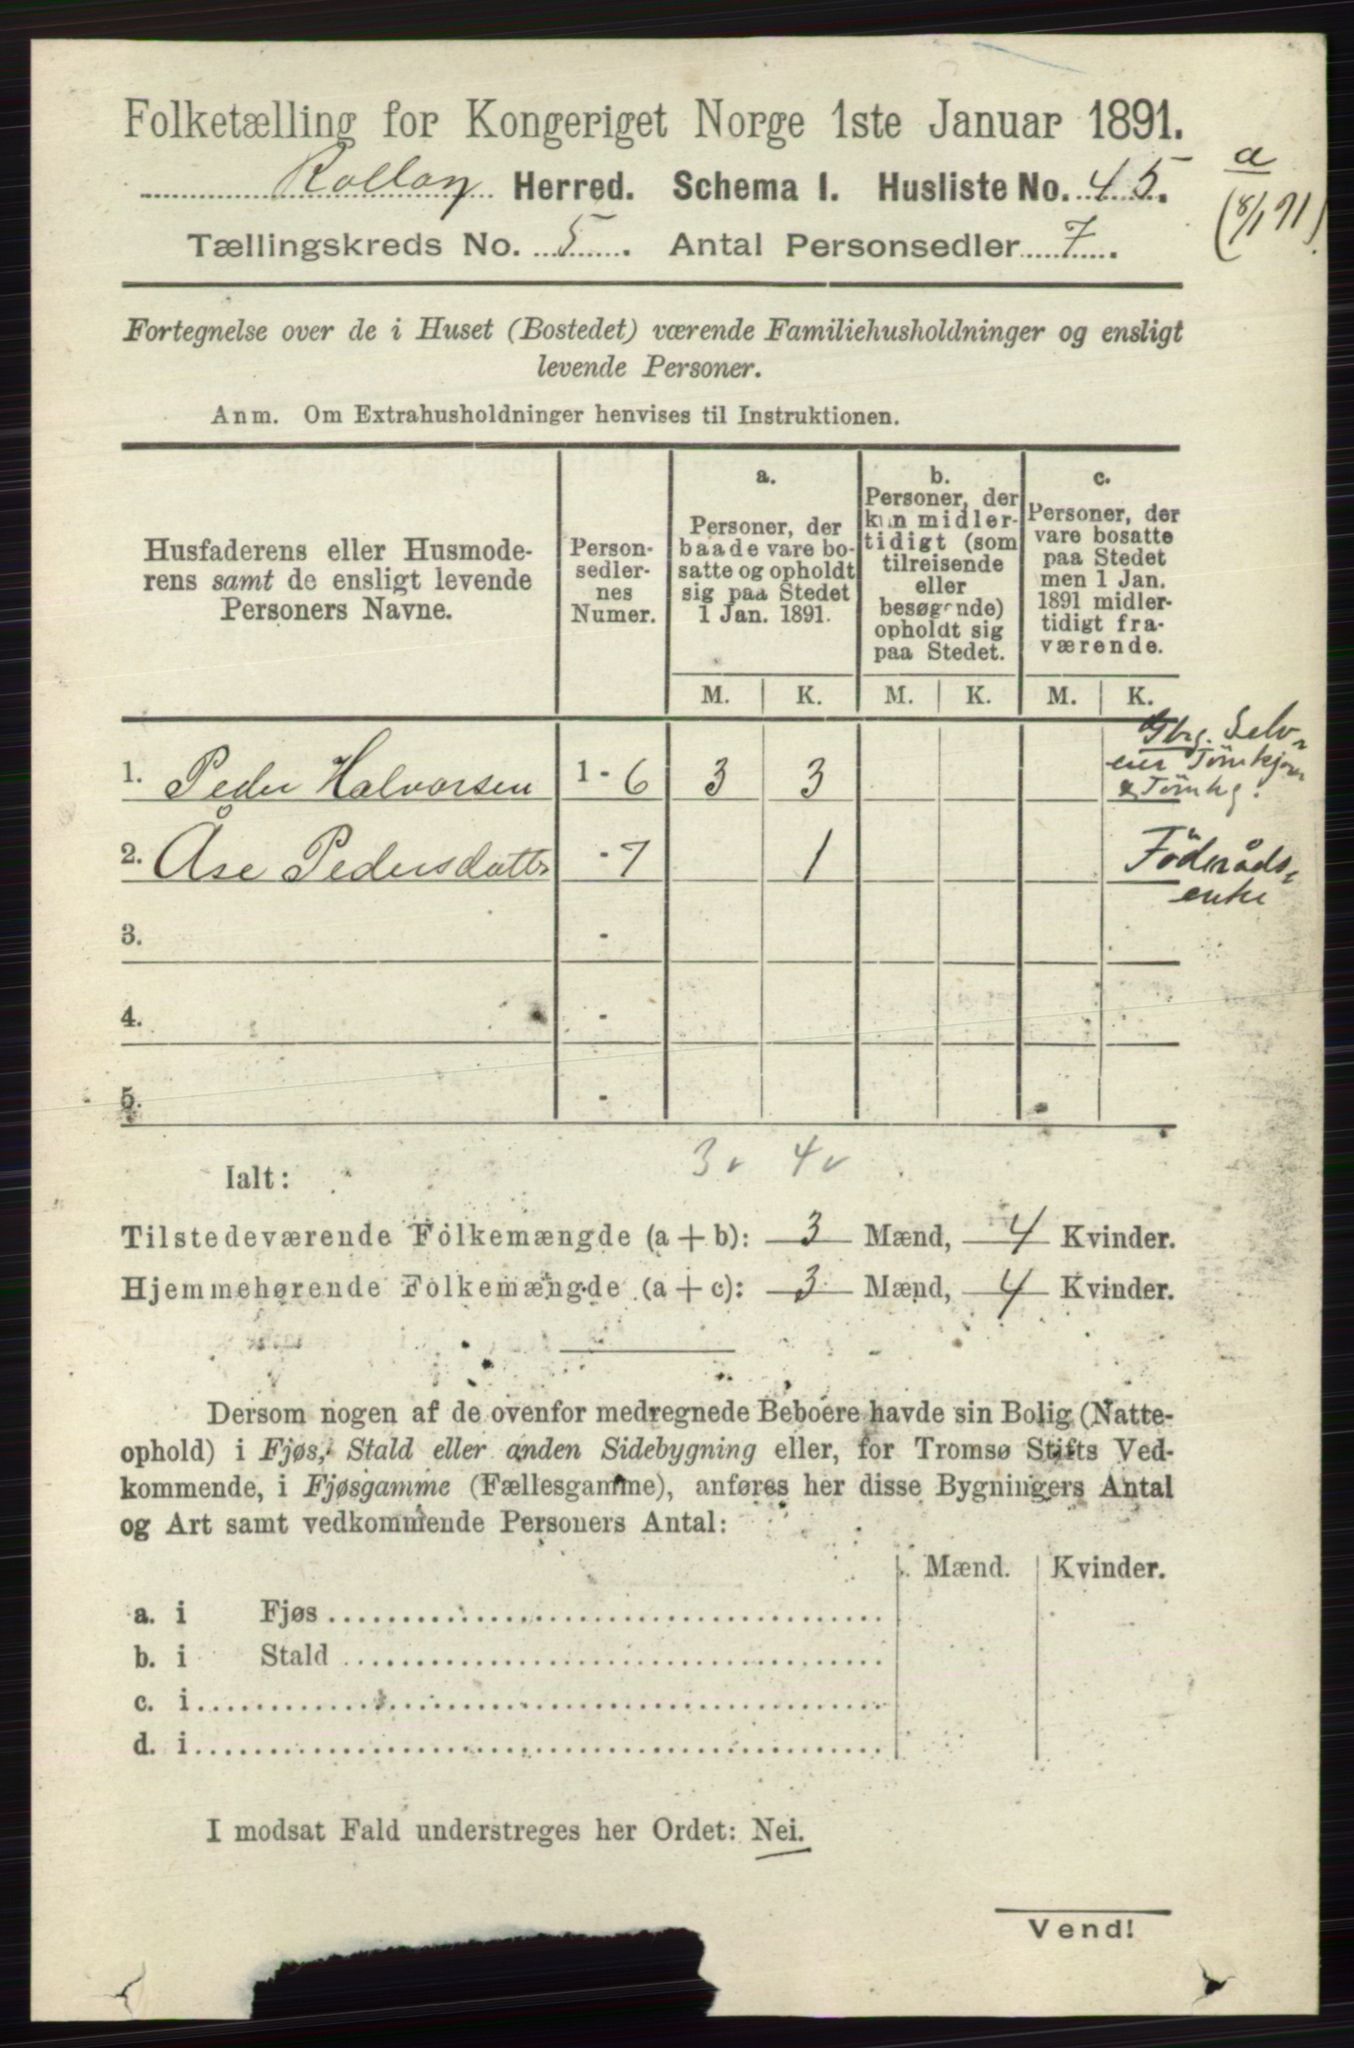 Folketælling for Kongeriget Norge 1ste Januar 1891.
Rollag Herred. Schema I. Husliste No. 45.
a
(8/1 91)
Tællingskreds No. 5. Antal Personsedler 7.
Fortegnelse over de i Huset (Bostedet) værende Familiehusholdninger og ensligt
levende Personer.
Anm. Om Extrahusholdninger henvises til Instruktionen.
Husfaderens eller Husmode-
rens samt de ensligt levende
Personers Navne.
Person-
sedler-
nes
Numer.
a.
Personer, der
baade vare bo-
satte og opholdt
sig paa Stedet
1 Jan. 1891.
b.
Personer, der
kun midler-
tidigt (som
tilreisende
eller
besøgende)
opholdt sig
paa Stedet.
c.
Personer, der
vare bosatte
paa Stedet
men 1 Jan.
1891 midler-
tidigt fra-
værende.
M. K. M. K. M. K.
Gbrg. Selv-
eier
1. Peder Halvorsen 1 - 6 3 3
2. Åse Pedersdatter - 7 1
Föderåds-
enke
3. -
4. -
5. -
Ialt: 3 v 4 v
Tilstedeværende Folkemængde (a + b): 3 Mænd, 4 Kvinder.
Hjemmehørende Folkemængde (a + c): 3 Mænd, 4 Kvinder.
Dersom nogen af de ovenfor medregnede Beboere havde sin Bolig (Natte-
ophold) i Fjøs, Stald eller anden Sidebygning eller, for Tromsø Stifts Ved-
kommende, i Fjøsgamme (Fællesgamme), anføres her disse Bygningers Antal
og Art samt vedkommende Personers Antal:
Mænd. Kvinder.
a. i Fjøs
b. i Stald
c. i
d. i
I modsat Fald understreges her Ordet: Nei.
Vend!